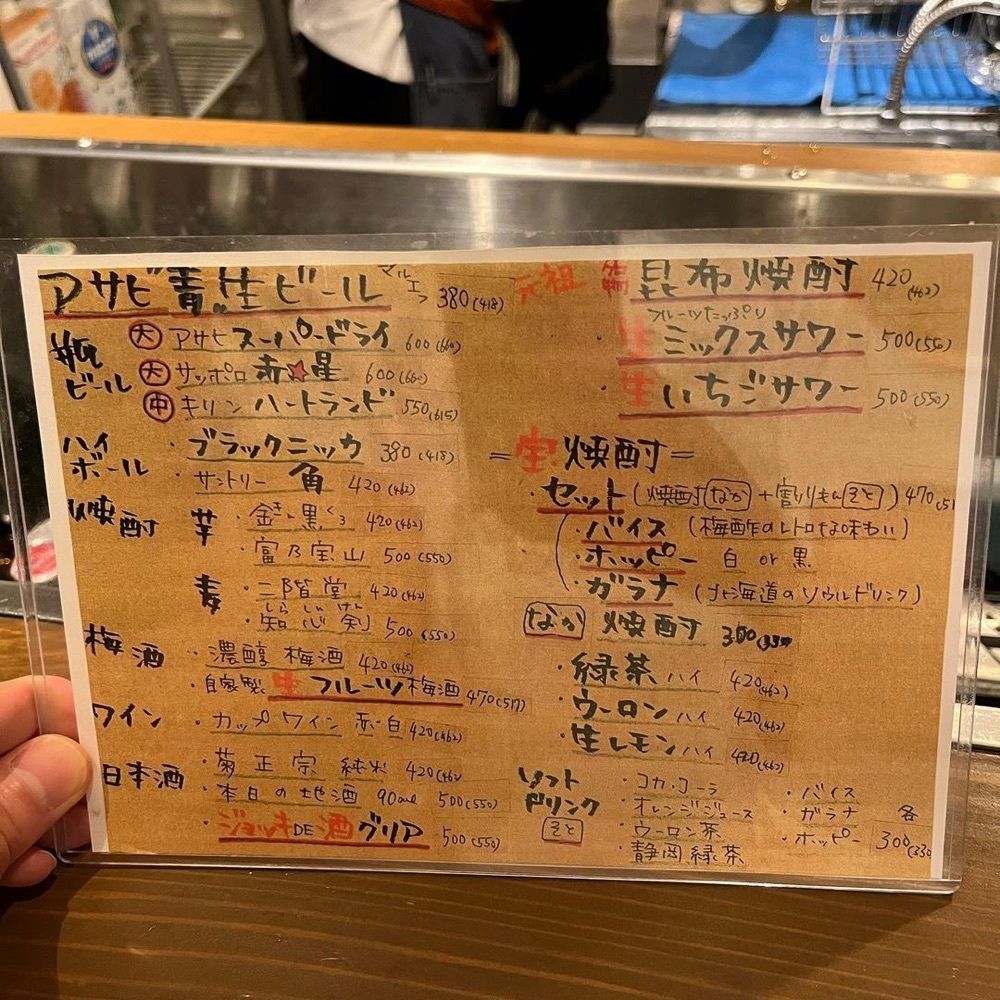 アサヒ 青生ビール マルエフ 380(418)
瓶ビール
大 アサヒ スーパードライ 600(660)
大 サッポロ 赤★星 600(660)
中 キリン ハートランド 550(615)
ハイボール
・ブラックニッカ 380(418)
・サントリー 角 420(462)
焼酎
芋
・金・黒 420(462)
・富乃宝山 500(550)
麦
・二階堂 420(462)
・知心剣 しらしんけん 500(550)
梅酒
・濃醇 梅酒 420(462)
・自家製 生フルーツ梅酒 470(517)
ワイン
・カップワイン 赤・白 420(462)
日本酒
・菊正宗 純米 420(462)
・本日の地酒 90ml 500(550)
・ジョッキDE酒グリア 500(550)
元祖 昆布焼酎 420(462)
フルーツたっぷり
・生ミックスサワー 500(550)
・生いちごサワー 500(550)
=宝焼酎=
・セット (焼酎なか+割りもんそと) 470(51
・バイス (梅酢のレトロな味わい)
・ホッピー 白 or 黒
・ガラナ (北海道のソウルドリンク)
なか 焼酎 300(330
・緑茶ハイ 420(462)
・ウーロンハイ 420(462)
・生レモンハイ 420(462)
ソフトドリンク
そと
・コカ・コーラ
・オレンジジュース
・ウーロン茶
・静岡緑茶
・バイス
・ガラナ
・ホッピー
各 300(330